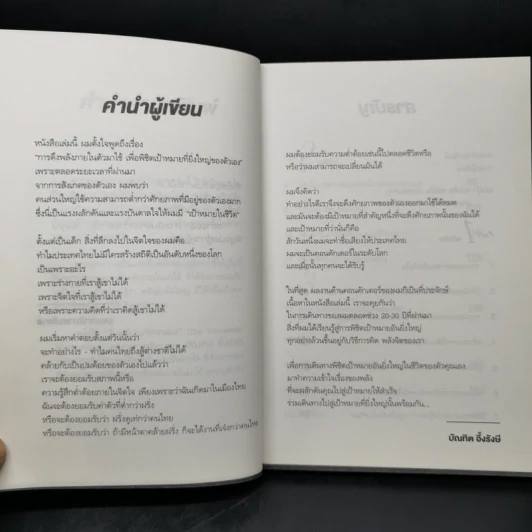 คำนำผู้เขียน
หนังสือเล่มนี้ ผมตั้งใจพูดถึงเรื่อง
"การดึงพลังภายในตัวมาใช้ เพื่อพิชิตเป้าหมายที่ยิ่งใหญ่ของตัวเอง"
เพราะตลอดระยะเวลาที่ผ่านมา
จากการสังเกตของตัวเอง ผมพบว่า
คนส่วนใหญ่ใช้ความสามารถต่ำกว่าศักยภาพที่มีอยู่ของตัวเองมาก
ซึ่งนี่เป็นแรงผลักดันและแรงบันดาลใจให้ผมมี "เป้าหมายในชีวิต"
ตั้งแต่เป็นเด็ก สิ่งที่ลึกลงไปในจิตใจของผมคือ
ทำไมประเทศไทยไม่มีใครสร้างสถิติเป็นอันดับหนึ่งของโลก
เป็นเพราะอะไร
เพราะร่างกายที่เราสู้เขาไม่ได้
เพราะจิตใจที่เราสู้เขาไม่ได้
หรือเพราะความคิดที่ว่าเราคิดสู้เขาไม่ได้
ผมเริ่มหาคำตอบตั้งแต่วันนั้นว่า
จะทำอย่างไร - ทำไมคนไทยถึงสู้ต่างชาติไม่ได้
คล้ายกับเป็นปมด้อยของตัวเองไปแล้วว่า
เราจะต้องยอมรับสภาพนี้หรือ
ความรู้สึกต่ำต้อยภายในจิตใจ เพียงเพราะว่าฉันเกิดมาในเมืองไทย
ฉันจะต้องยอมรับค่าตัวที่ต่ำกว่าฝรั่ง
หรือจะต้องยอมรับว่า ฝรั่งดูเท่กว่าคนไทย
หรือจะต้องยอมรับว่า ถ้ามีหน้าตาคล้ายฝรั่ง ก็จะได้งานที่เจ๋งกว่าคนไทย
ผมต้องยอมรับความต่ำต้อยเช่นนี้ไปตลอดชีวิตหรือ
หรือว่าผมสามารถจะเปลี่ยนมันได้
ผมจึงคิดว่า
ทำอย่างไรดีเราจึงจะดึงศักยภาพของตัวเองออกมาใช้ได้หมด
และมันจะต้องมีเป้าหมายที่สำคัญหนึ่งที่จะดึงศักยภาพนั้นของฉันได้
และเป้าหมายที่ว่านั่นก็คือ
สักวันหนึ่งผมจะทำชื่อเสียงให้ประเทศไทย
ผมจะเป็นคอนดักเตอร์ในระดับโลก
และเมื่อนั้นทุกคนจะได้รับรู้
ในที่สุด ผลงานด้านคอนดักเตอร์ของผมก็เป็นที่ประจักษ์
เนื้อหาในหนังสือเล่มนี้ เราจะคุยกันว่า
ในการเดินทางของผมตลอดช่วง 20-30 ปีที่ผ่านมา
สิ่งที่ผมได้เรียนรู้สู่การพิชิตเป้าหมายอันยิ่งใหญ่
ทุกอย่างล้วนขึ้นอยู่กับวิธีการคิด พลังจิตของเรา
เพื่อการเดินทางพิชิตเป้าหมายอันยิ่งใหญ่ในชีวิตของตัวคุณเอง
มาทำความเข้าใจเรื่องของพลัง
ที่จะผลักดันคุณไปสู่เป้าหมายให้สำเร็จ
ร่วมเดินทางไปสู่เป้าหมายที่ยิ่งใหญ่นั้นพร้อมกัน...
บัณฑิต อึ้งรังษี